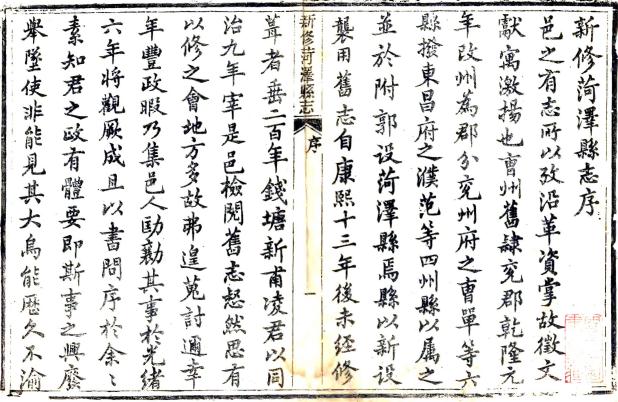 新修菏澤縣志序
邑之有志所以攷沿革資掌故徵文
獻寓激揚也曹州舊隷兖郡乾隆元
年改州為郡分兖州府之曹單等六
縣撥東昌府之濮范等四州縣以属之
並於附郭設菏澤縣焉縣以新設
襲用舊志自康熙十三年後未經修
新修菏澤縣志
序
一
葺者垂二百年錢塘新甫凌君以同
治九年宰是邑檢閱舊志惄然思有
以修之會地方多故弗遑蒐討邇幸
年豐政暇乃集邑人劻勷其事於光緒
六年將觀厥成且以書問序於余〻
素知君之政有體要即斯事之興廢
舉墜使非能見其大烏能歷久不渝